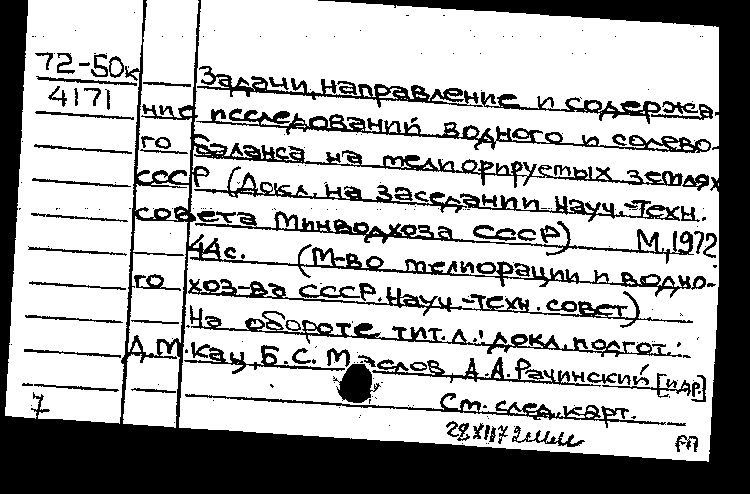 72-50к
4171
Задачи, направление и содержа-
ние исследований водного и солево-
го баланса на мелиорируемых землях
СССР (Докл. на заседании Науч.-техн.
совета Минводхоза СССР) М., 1972
44с. (М-во мелиорации и водно-
го хоз-ва СССР. Науч.-техн. совет)
На обороте тит. л.: докл. подгот.:
Д.М. Кац, Б.С. Маслов, А.А. Рачинский [и др.]
См. след. карт.
7
РП